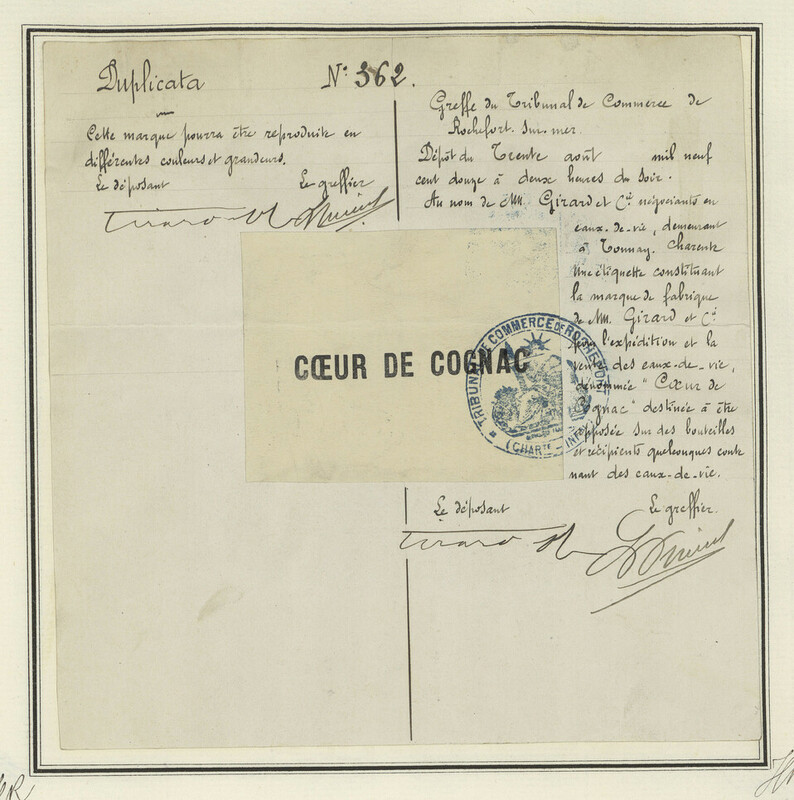 Duplicata
N° 362.
Cette marque pourra être reproduite en
différentes couleurs et grandeurs.
Le déposant Le greffier
Greffe du Tribunal de Commerce de
Rochefort-sur-mer.
Dépôt du Trente août mil neuf
cent douze à deux heures du soir.
Au nom de MM. Girard et Cie négociants en
eaux-de-vie, demeurant
à Tonnay-Charente
Une étiquette constituant
la marque de fabrique
de MM. Girard et Cie
pour l'expédition et la
vente des eaux-de-vie,
dénommée "Cœur de
Cognac" destinée à être
apposée sur des bouteilles
et récipients quelconques conte
nant des eaux-de-vie.
CŒUR DE COGNAC
TRIBUNAL DE COMMERCE DE ROCHEFORT
(CHARTE-INFRE)
Le déposant Le greffier.